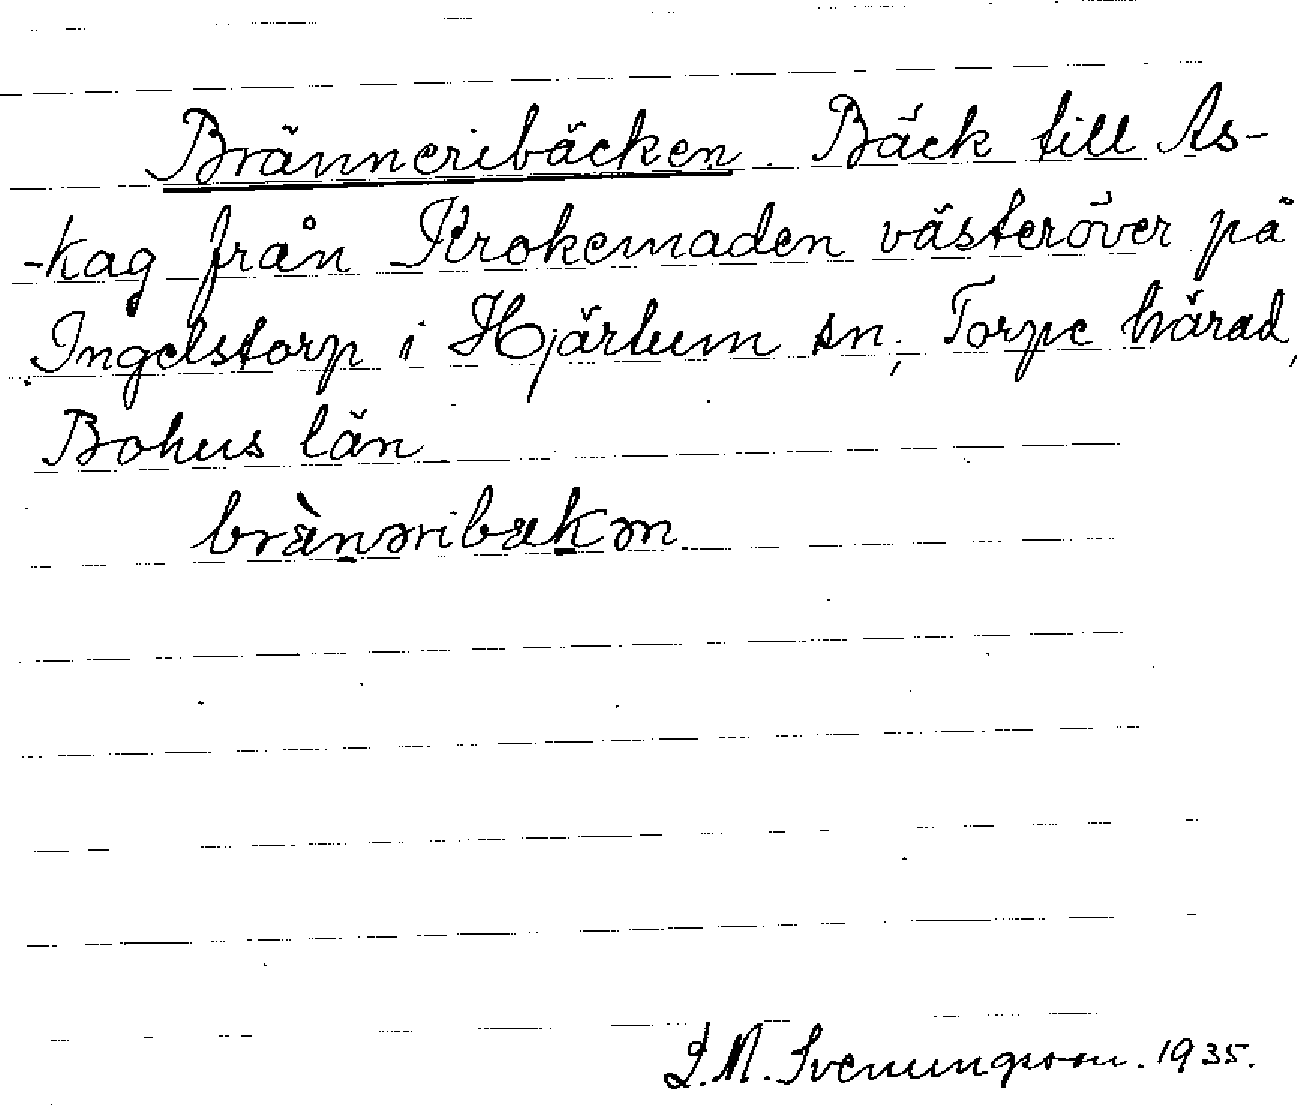 Bränneribäcken. Bäck till As-
-kag från Krokemaden västeröver på
Ingelstorp i Hjärtum sn, Torpe härad,
Bohus län
brànəribækən
J.M. Svenungsson. 1935.